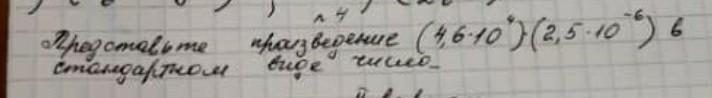 №4
Представьте произведение (4,6·10⁴)·(2,5·10⁻⁶) в
стандартном виде число.